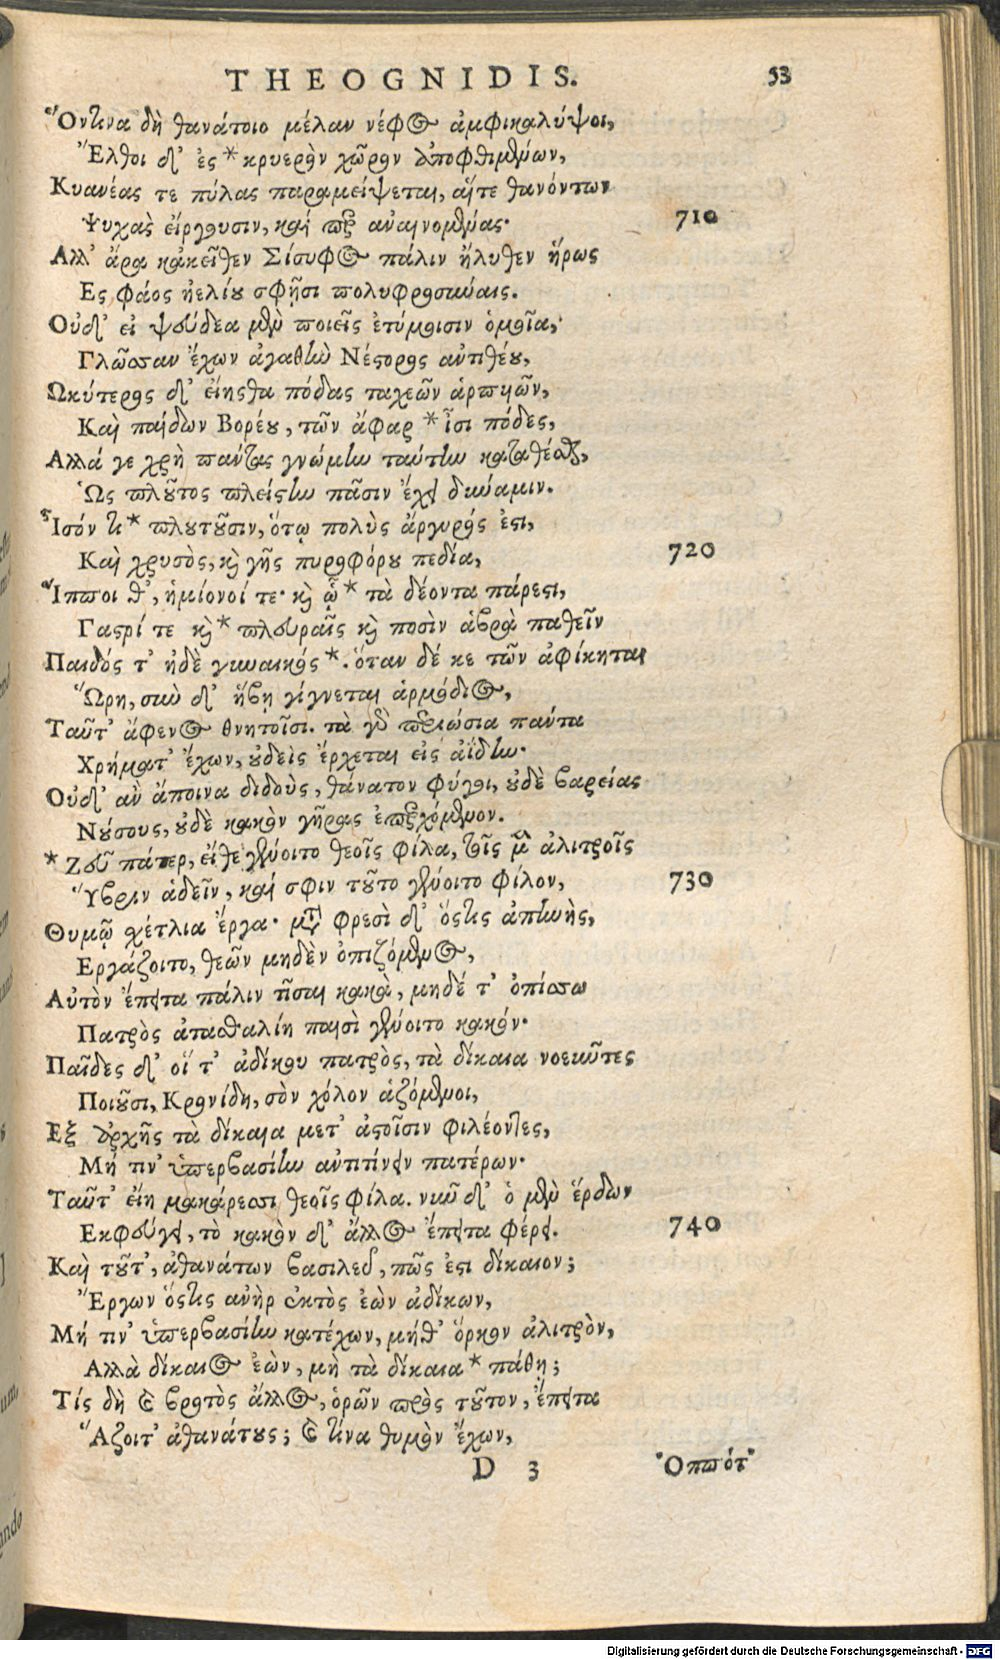 THEOGNIDIS. 53
Ὅντινα δὴ θανάτοιο μέλαν νέφος ἀμφικαλύψοι,
Ἔλθοι δ' ἐς * κρυερὸν χῶρον ἀποφθιμένων,
Κυανέας τε πύλας παραμείψεται, αἵτε θανόντων
Ψυχὰς εἴργουσιν, καί περ ἀναινομένας· 710
Ἀλλ' ἄρα κἀκεῖθεν Σίσυφος πάλιν ἤλυθεν ἥρως
Ες φάος ἠελίου σφῇσι πολυφροσύναις.
Οὐδ' εἰ ψεύδεα μὲν ποιεῖς ἐτύμοισιν ὁμοῖα,
Γλῶσσαν ἔχων ἀγαθὴν Νέστορος ἀντιθέου,
Ὠκύτερος δ' εἴησθα πόδας ταχεῶν ἁρπυιῶν,
Καὶ παίδων Βορέου, τῶν ἄφαρ * εἶσι πόδες,
Ἀλλά γε χρὴ πάντας γνώμην ταύτην καταθέσθαι,
Ὡς πλοῦτος πλείστην πᾶσιν ἔχει δύναμιν.
Ἶσόν τι * πλουτοῦσιν, ὅτῳ πολὺς ἄργυρός ἐστι,
Καὶ χρυσὸς, καὶ γῆς πυροφόρου πεδία, 720
Ἵπποι θ', ἡμίονοί τε· καὶ ᾧ * τὰ δέοντα πάρεστι,
Γαστρί τε καὶ * πλευραῖς καὶ ποσὶν ἁβρὰ παθεῖν
Παιδός τ' ἠδὲ γυναικός *. ὅταν δέ κε τῶν ἀφίκηται
Ὥρη, σὺν δ' ἥβη γίγνεται ἁρμόδιος,
Ταῦτ' ἄφενος θνητοῖσι. τὰ γὰρ περιώσια πάντα
Χρήματ' ἔχων, οὐδεὶς ἔρχεται εἰς ἀΐδην·
Οὐδ' ἂν ἄποινα διδοὺς, θάνατον φύγοι, οὐδὲ βαρείας
Νούσους, οὐδὲ κακὸν γῆρας ἐπερχόμενον.
* Ζεῦ πάτερ, εἴθε γένοιτο θεοῖς φίλα, τοῖς μὲν ἀλιτροῖς
Ὕβριν ἁδεῖν, καί σφιν τοῦτο γένοιτο φίλον, 730
Θυμῷ σχέτλια ἔργα· μετὰ φρεσὶ δ' ὅστις ἀπηνὴς,
Εργάζοιτο, θεῶν μηδὲν ὀπιζόμενος,
Αὐτὸν ἔπειτα πάλιν τῖσαι κακὰ, μηδέ τ' ὀπίσσω
Πατρὸς ἀτασθαλίη παισὶ γένοιτο κακόν·
Παῖδες δ' οἵ τ' ἀδίκου πατρὸς, τὰ δίκαια νοεῦντες
Ποιοῦσι, Κρονίδη, σὸν χόλον ἁζόμενοι,
Ἐξ ἀρχῆς τὰ δίκαια μετ' ἀστοῖσιν φιλέοντες,
Μή τιν' ὑπερβασίην ἀντιτίνειν πατέρων·
Ταῦτ' εἴη μακάρεσσι θεοῖς φίλα. νῦν δ' ὁ μὲν ἕρδων
Εκφεύγει, τὸ κακὸν δ' ἄλλος ἔπειτα φέρει. 740
Καὶ τοῦτ', ἀθανάτων βασιλεῦ, πῶς ἐστι δίκαιον;
Ἔργων ὅστις ἀνὴρ ἐκτὸς ἐὼν ἀδίκων,
Μή τιν' ὑπερβασίην κατέχων, μήθ' ὅρκον ἀλιτρὸν,
Ἀλλὰ δίκαιος ἐὼν, μὴ τὰ δίκαια * πάθῃ;
Τίς δὴ καὶ βροτὸς ἄλλος, ὁρῶν πρὸς τοῦτον, ἔπειτα
Ἅζοιτ' ἀθανάτους; καὶ τίνα θυμὸν ἔχων,
D 3 Ὁππότ'
Digitalisierung gefördert durch die Deutsche Forschungsgemeinschaft - DFG